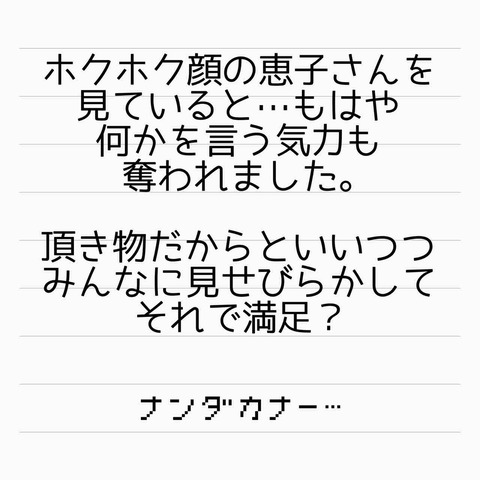 ホクホク顔の恵子さんを
見ていると…もはや
何かを言う気力も
奪われました。
頂き物だからといいつつ
みんなに見せびらかして
それで満足？
ナンダカナー…